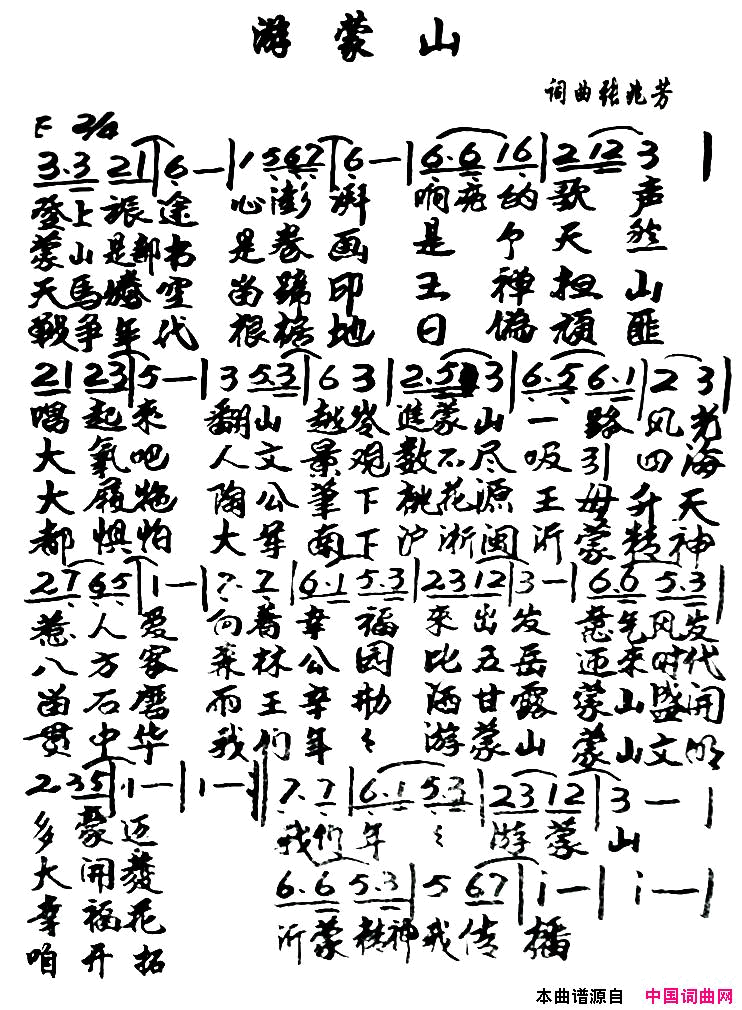 游蒙山
词曲张兆芳
F 2/4
3·3 21 | 6 — | 1 567 | 6 — | 6·6 16 | 2 12 | 3 |
登上旅途 心澎湃 响亮的歌声
蒙山是部书 是卷画 是个天然
天馬 空 留蹄印 王禅担山
戰争年代 根据地 日偽頑匪
21 23 | 5 — | 3 5·3 | 6 3 | 2·5 3 | 6·5 6·1 | 2 3 |
唱起來 翻山越岺進蒙山 一路风光
大氧吧 人文景观数不尽 吸引四海
大 拖 陶公筆下桃花源 王母升天
都惧怕 大軍南下沪浙闽 沂蒙精神
27 65 | 1 — | 7·7 | 6·1 5·3 | 23 12 | 3 — | 6·6 5·3 |
惹人爱 向着幸福來出发 意气风发
八方客 森林公园比五岳 迎来时代
留石磨 而王 洒甘露 蒙山盛開
贯中华 我们年年游蒙山 蒙山文明
2· 35 | 1 — | 1 — :‖ 7·7 | 6·1 5·3 | 23 12 | 3 — |
多豪迈 我们年年游蒙山
大開發
幸福花 6·6 5·3 | 5 67 | i — | i — |
咱开拓 沂蒙精神我传播
本曲谱源自 中国词曲网